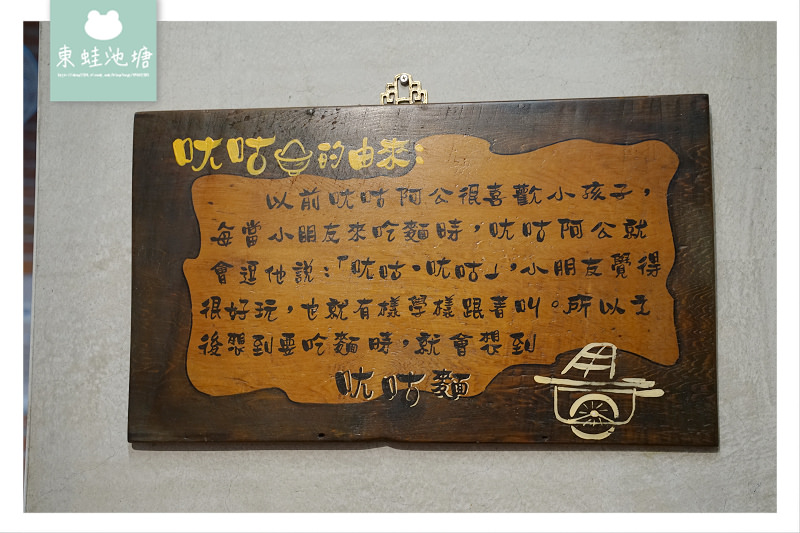 東蛙池塘
呅咕的由來:
以前呅咕阿公很喜歡小孩子，
每當小朋友來吃麵時，呅咕阿公就
會逗他說：「呅咕，呅咕」，小朋友覺得
很好玩，也就有樣學樣跟著叫。所以之
後想到要吃麵時，就會想到
呅咕麵